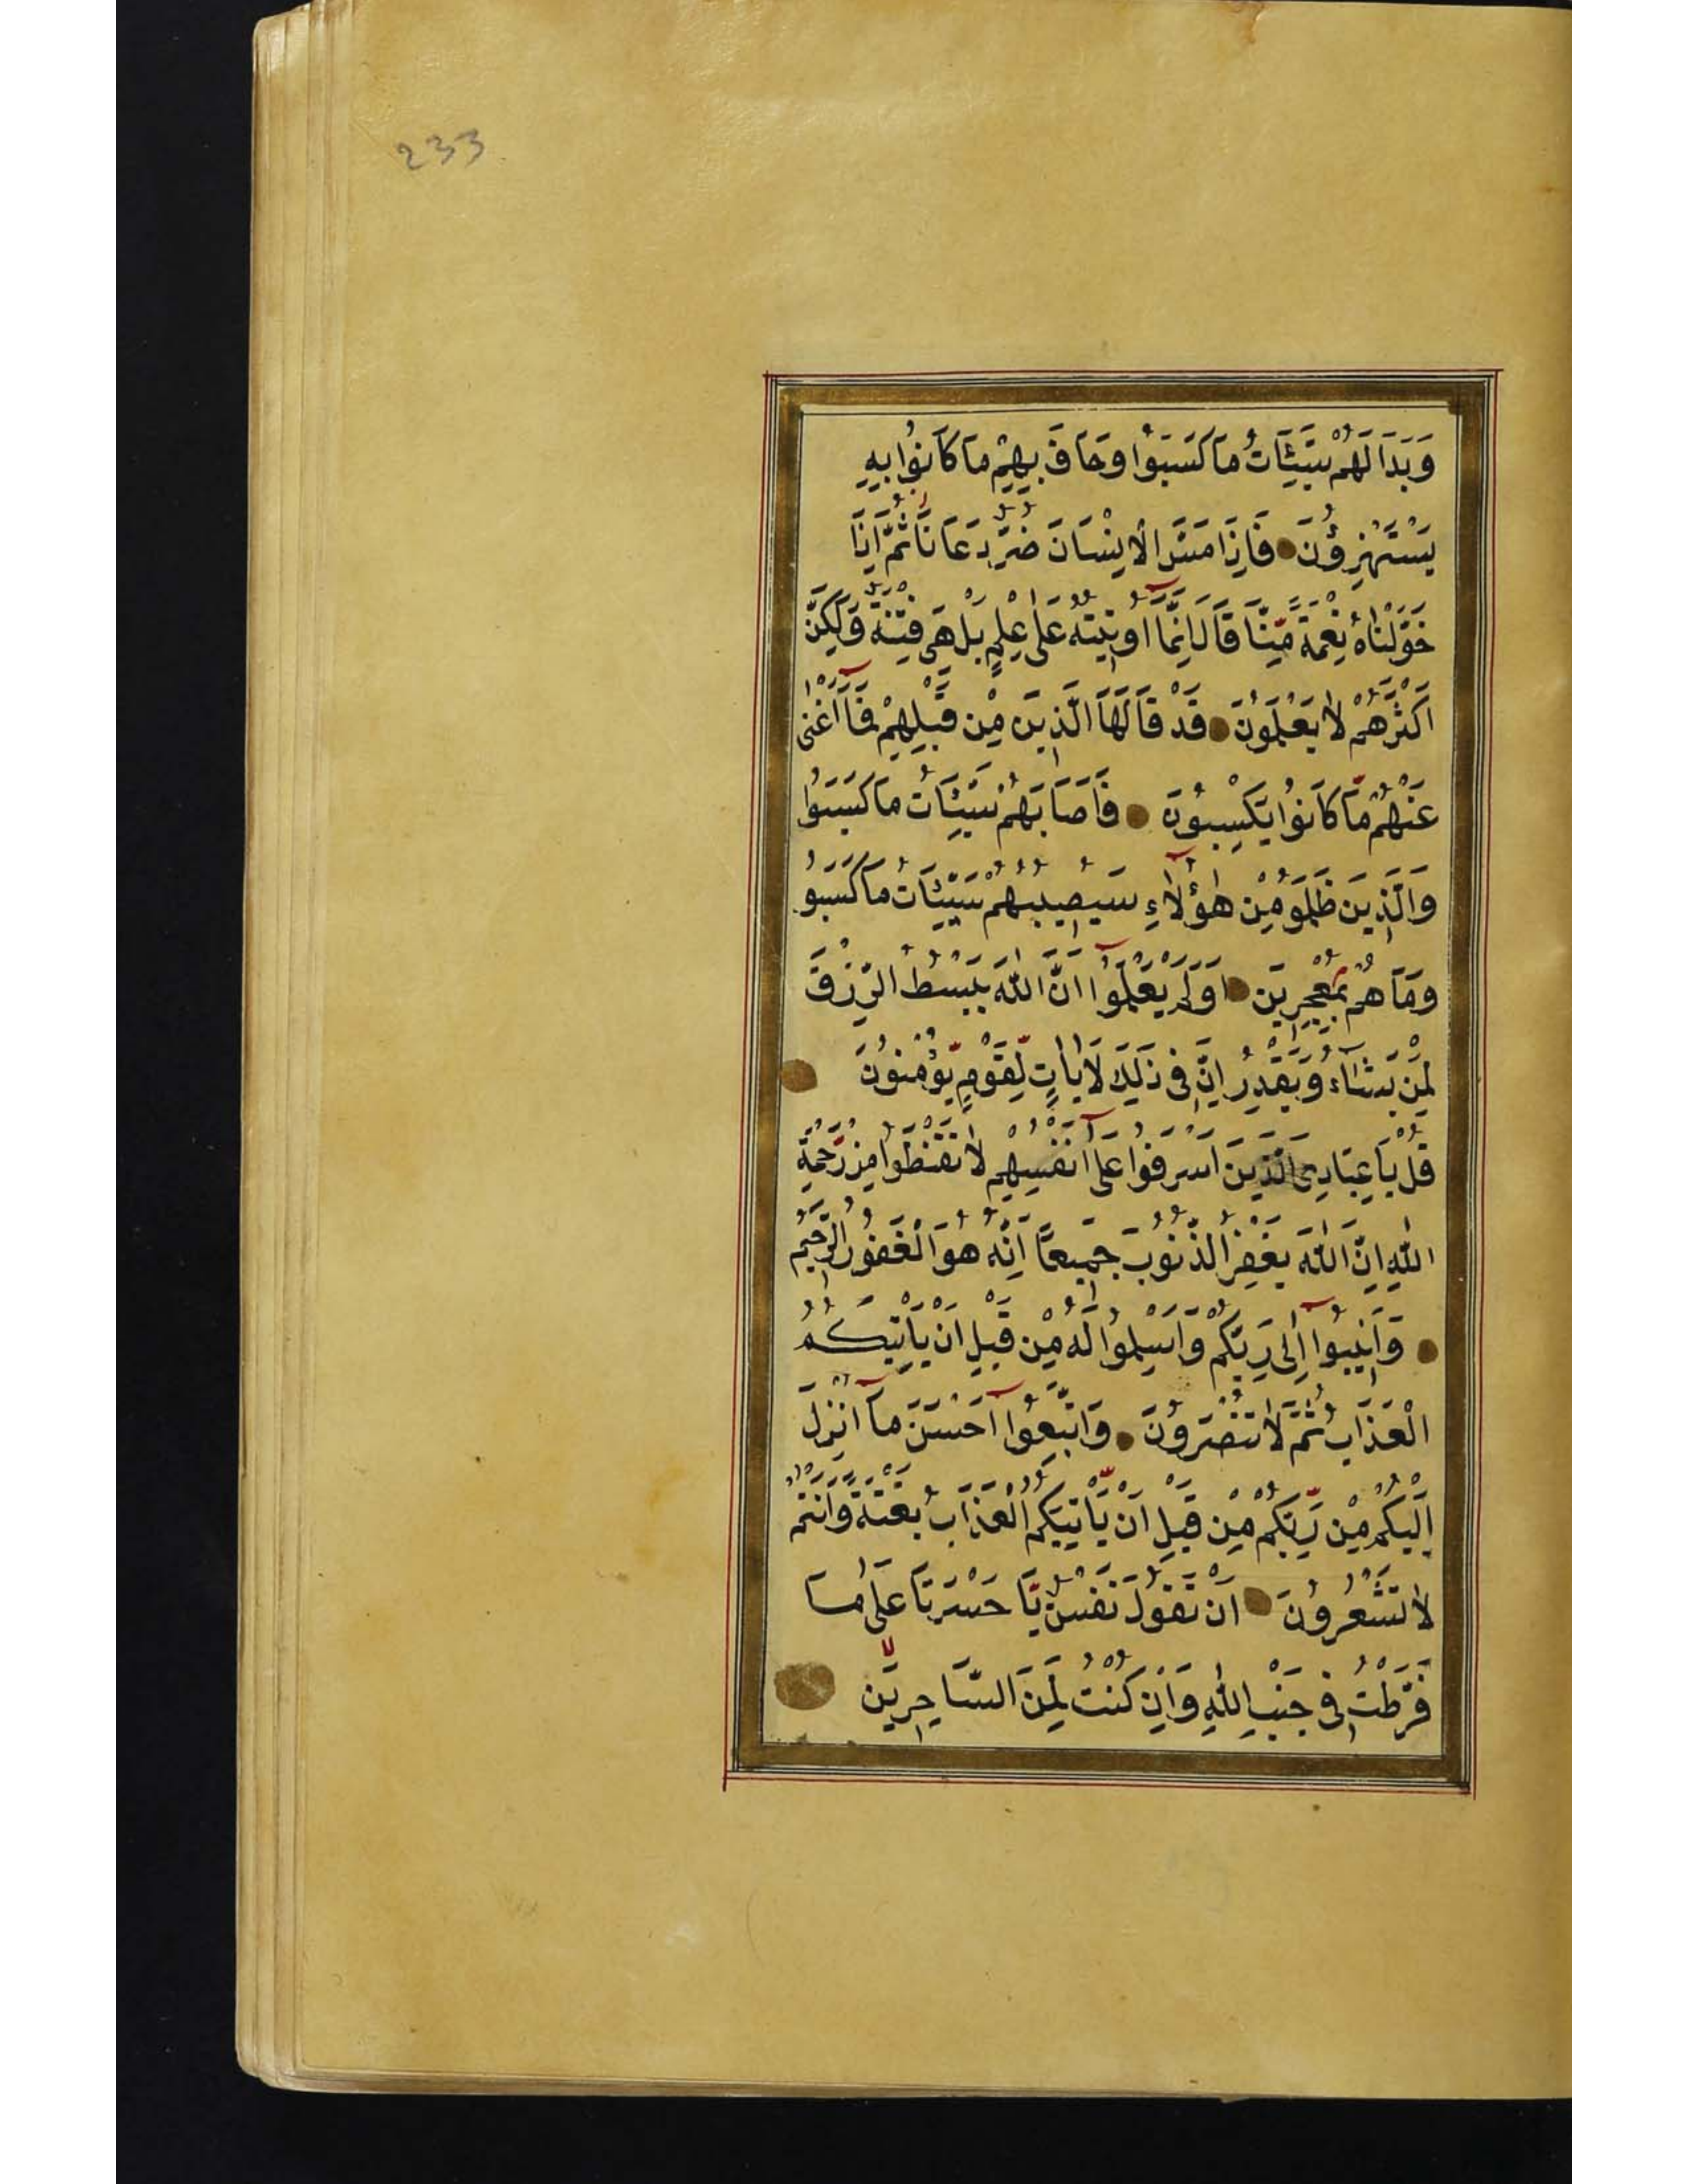 233
وَبَدَا لَهُمْ سَيِّئَاتُ مَا كَسَبُوا وَحَاقَ بِهِمْ مَا كَانُوا بِهِ
يَسْتَهْزِؤُنَ فَاِذَا مَسَّ الْاِنْسَانَ ضُرٌّ دَعَانَا ثُمَّ اِذَا
خَوَّلْنَاهُ نِعْمَةً مِنَّا قَالَ اِنَّمَا اُوتِيتُهُ عَلٰى عِلْمٍ بَلْ هِىَ فِتْنَةٌ وَلٰكِنَّ
اَكْثَرَهُمْ لَا يَعْلَمُونَ قَدْ قَالَهَا الَّذِينَ مِنْ قَبْلِهِمْ فَمَا اَغْنٰى
عَنْهُمْ مَا كَانُوا يَكْسِبُونَ فَاَصَابَهُمْ سَيِّئَاتُ مَا كَسَبُوا
وَالَّذِينَ ظَلَمُو مِنْ هٰؤُلَاءِ سَيُصِيبُهُمْ سَيِّئَاتُ مَا كَسَبُو
وَمَا هُمْ بِمُعْجِزِينَ اَوَلَمْ يَعْلَمُوا اَنَّ اللّٰهَ يَبْسُطُ الرِّزْقَ
لِمَنْ يَشَاءُ وَيَقْدِرُ اِنَّ فِى ذٰلِكَ لَاٰيَاتٍ لِقَوْمٍ يُؤْمِنُونَ
قُلْ يَا عِبَادِىَ الَّذِينَ اَسْرَفُوا عَلٰى اَنْفُسِهِمْ لَا تَقْنَطُوا مِنْ رَحْمَةِ
اللّٰهِ اِنَّ اللّٰهَ يَغْفِرُ الذُّنُوبَ جَمِيعًا اِنَّهُ هُوَ الْغَفُورُ الرَّحِيمُ
وَاَنِيبُوا اِلٰى رَبِّكُمْ وَاَسْلِمُوا لَهُ مِنْ قَبْلِ اَنْ يَاْتِيَكُمُ
الْعَذَابُ ثُمَّ لَا تُنْصَرُونَ وَاتَّبِعُوا اَحْسَنَ مَا اُنْزِلَ
اِلَيْكُمْ مِنْ رَبِّكُمْ مِنْ قَبْلِ اَنْ يَاْتِيَكُمُ الْعَذَابُ بَغْتَةً وَاَنْتُمْ
لَا تَشْعُرُونَ اَنْ تَقُولَ نَفْسٌ يَا حَسْرَتَا عَلٰى مَا
فَرَّطْتُ فِى جَنْبِ اللّٰهِ وَاِنْ كُنْتُ لَمِنَ السَّاخِرِينَ